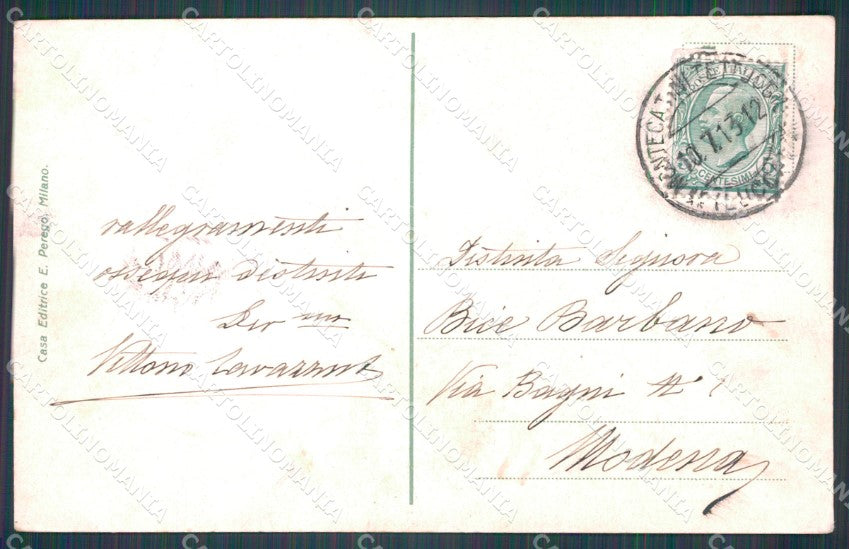 Casa Editrice E. Perego, Milano.
rallegramenti
ossequi distinti
Dev mo
Vittorio Cavazzuti
10.7.13.12
CENTESIMI
Distinta Signora
Bice Barbano
Via Bagni N° 1
Modena
CARTOLINOMANIA